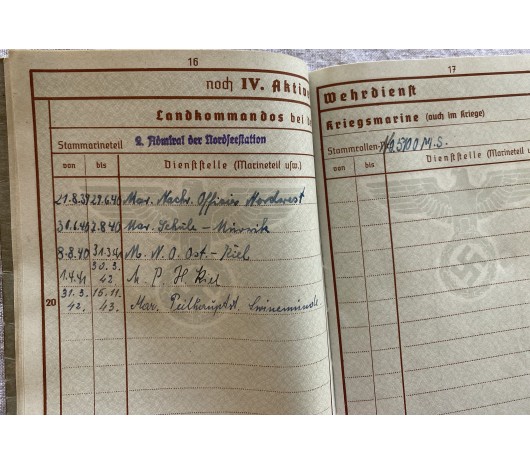 16
noch IV. Aktiv
Landkommandos bei d
Stammarineteil 2. Admiral der Nordseestation
von bis Dienststelle (Marineteil usw.)
21.8.39 29.6.40 Mar. Nachr. Offizier Nordwest
30.6.40 7.8.40 Mar. Schule - Mürwik
8.8.40 31.3.41 M.N.O. Ost. - Kiel
1.4.41 30.3.42 M. P. H. Kiel
31.3.42. 15.11.43. Mar. Peilhauptst. Swinemünde
20
17
Wehrdienst
Kriegsmarine (auch im Kriege)
Stammrollen-Nr. 25700 M.S.
von bis Dienststelle (Marineteil u